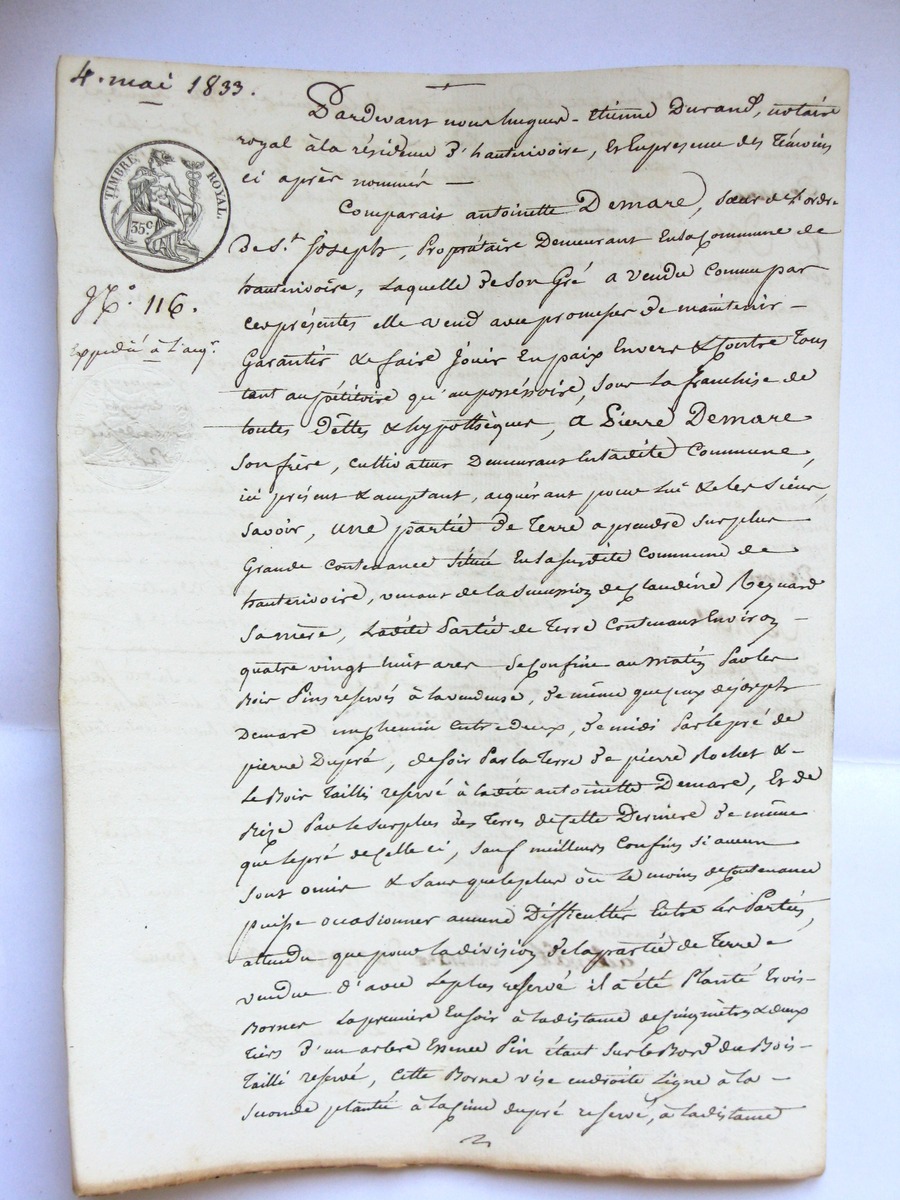 4. mai 1833.
Pardevant nous hugues-etienne Durand, notaire
royal à la résidence d'hauterivoire, et en presence des Témoins
ci après nommés —
TIMBRE ROYAL.
35.c
Comparait antoinette Demare, sœur de l'ordre
De St Joseph, Propriétaire Demeurant En la Commune de
hauterivoire, Laquelle de son Gré a vendu comme par
N.o 116.
ces présentes elle a vend avec promesse de maintenir —
Expédié à l'aqr.
Garantir & faire jouir En paix Envers & Contre Tous
tant au pétitoire qu'au posséssoire, sous la franchise de
toutes Dêttes & hypothèques, a Pierre Demare
son frère, cultivateur Demeurant En ladite Commune,
ici présent & acceptant, aquérant pour lui & les siens,
savoir, une partie de Terre a prendre sur plus
Grande contenance située En la susdite Commune de
hauterivoire, venant de la succession de Claudine Reynard
sa mère, Ladite Partie de Terre Contenant Environ —
quatre vingt huit ares se Confine au matin Par les
Bois Pins reservés à la vendeuse, de même que ceux de joseph
Demare un chemin entre deux, de midi Par le pré de
pierre Dupré, de soir Par la Terre de pierre Rochet &
Le Bois Taillis reservé à ladite antoinette Demare, Et de
Bize Par le surplus des Terres de Cette Derniere de même
que le pré de Celle ci, sauf meilleurs Confins si aucun
sont omis & sans que le plus où le moins de Contenance
puisse occasionner aucune Difficultés Entre les Parties,
attendu que pour la division de la partie de Terre
vendue d'avec le plus reservé il a été Planté Trois
Bornes La premiere En soir à la distance de Cinq mètres & deux
Tiers d'un arbre Essence Pin étant sur le Bord du Bois
Taillis reservé, Cette Borne vise en droite Ligne à la —
seconde plantée à la Cime du pré reservé, à la distance